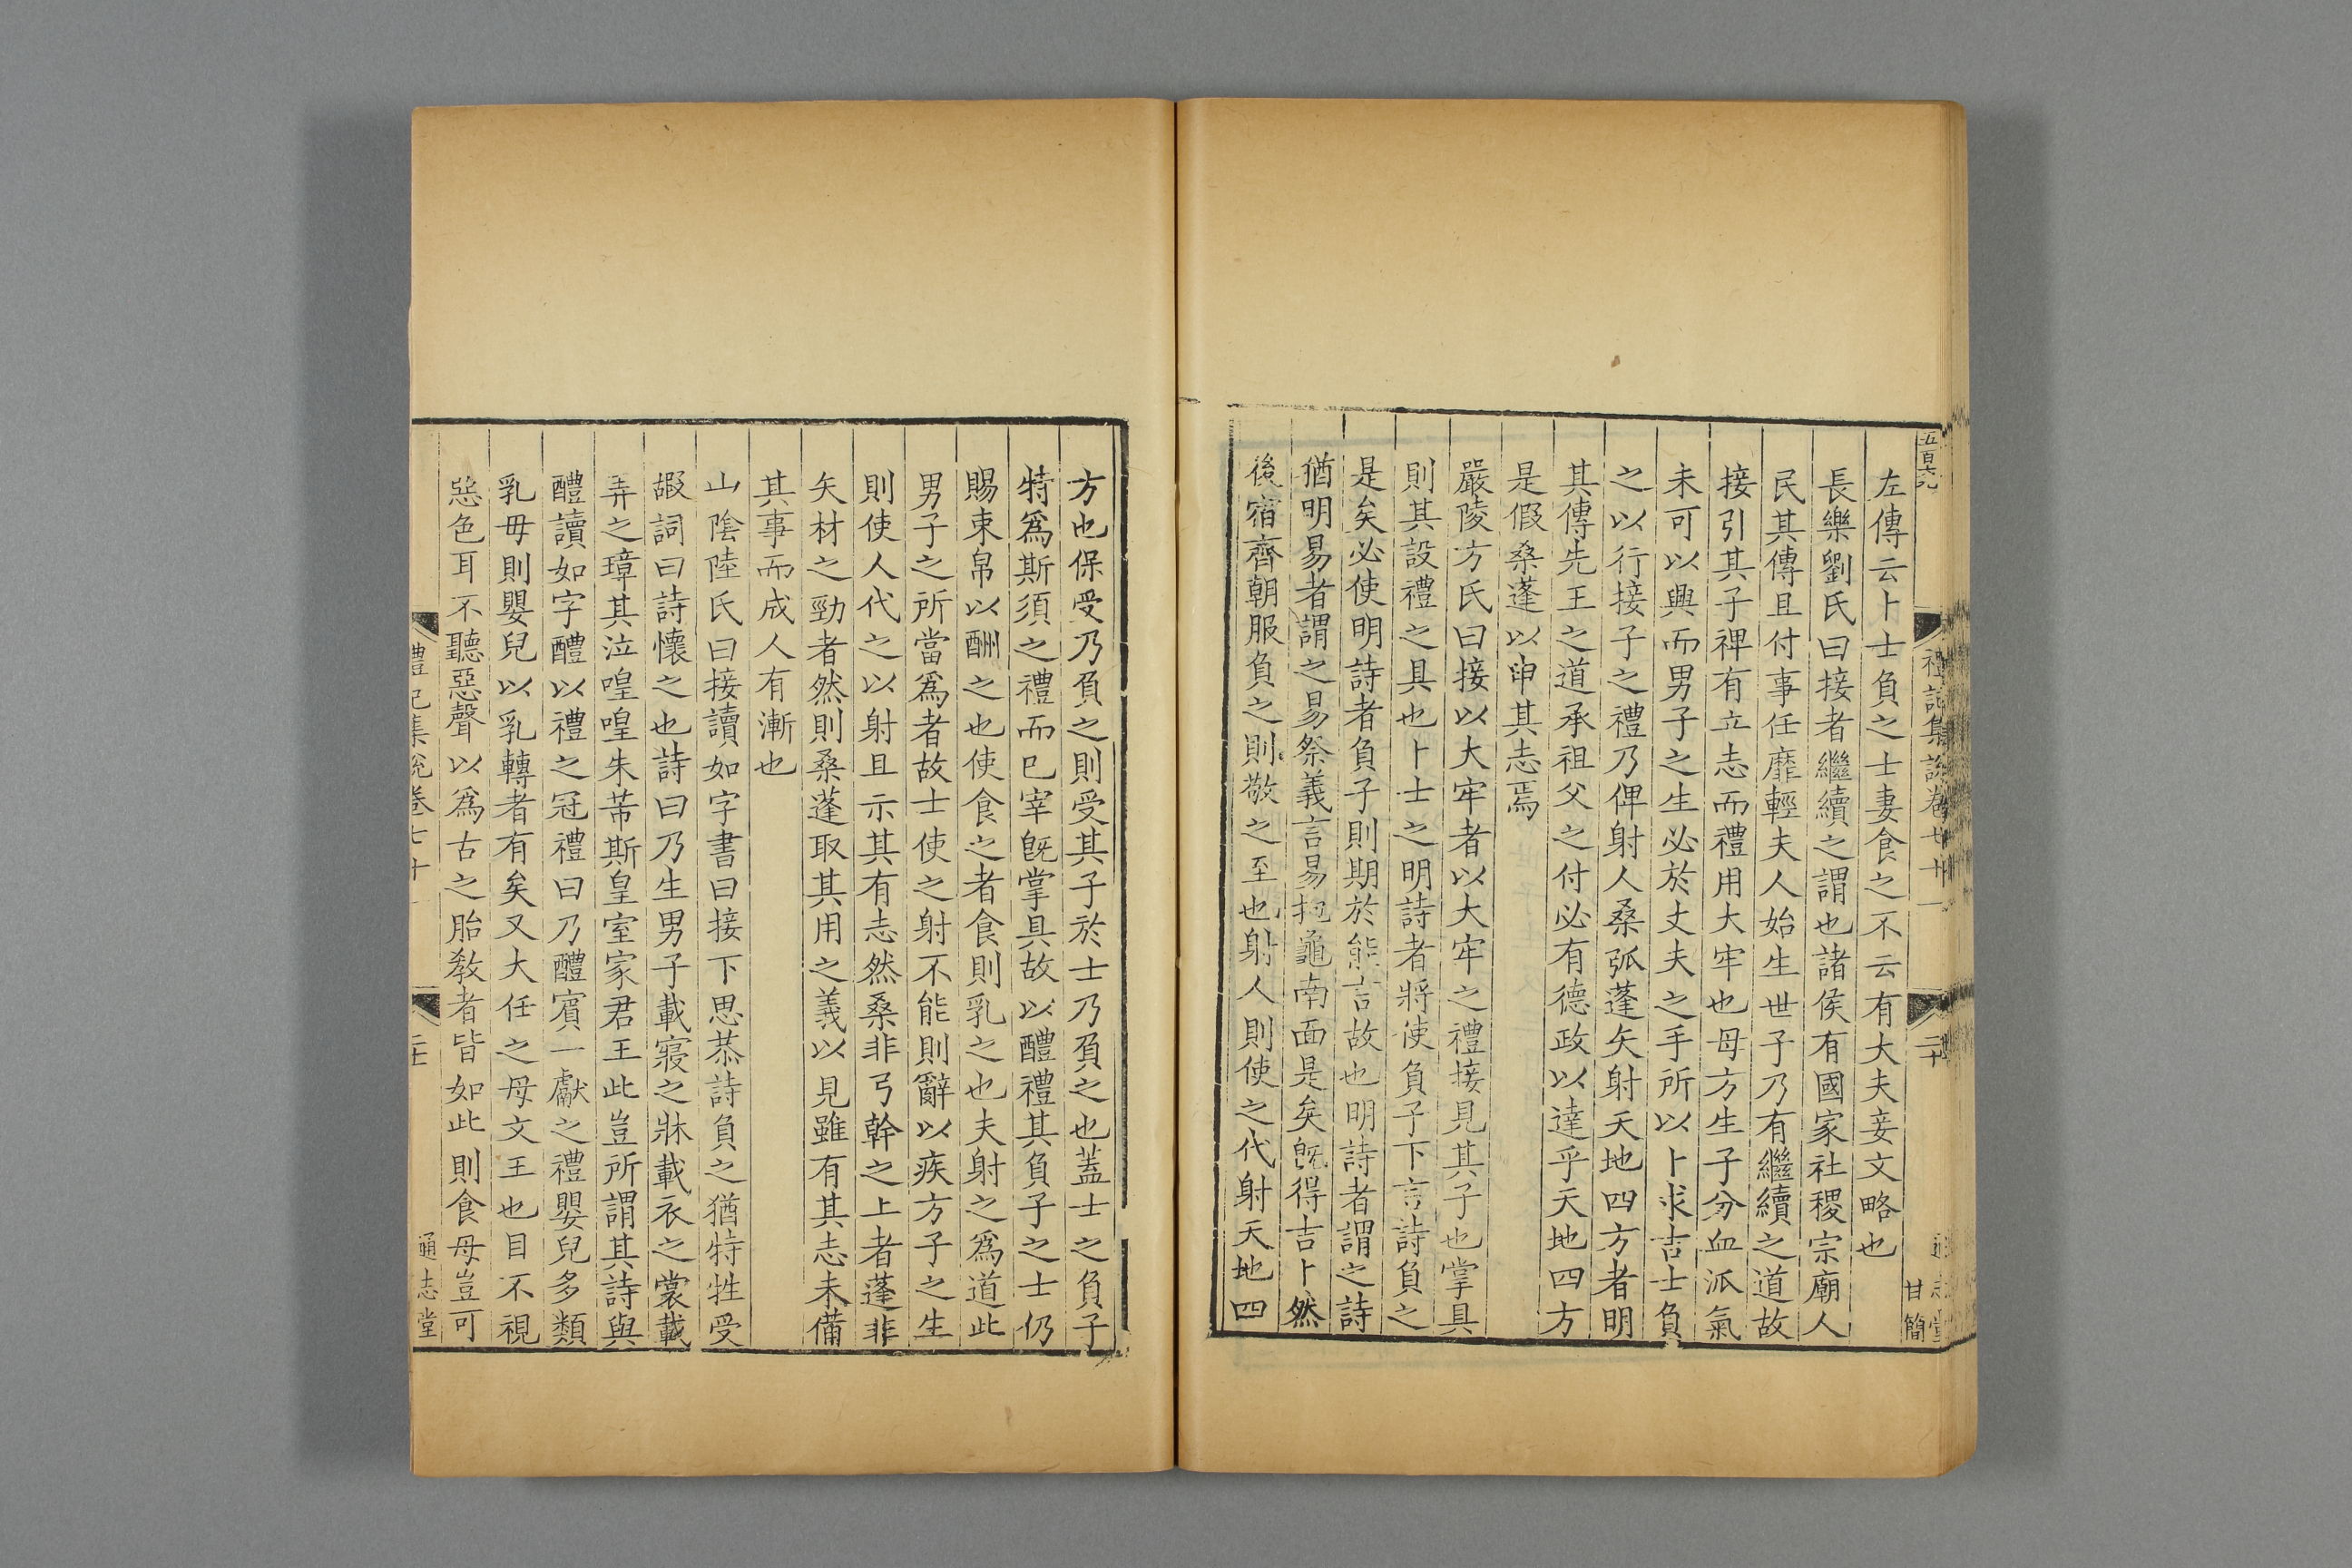 五百六九
禮記集說卷七十一
二十
甘簡
左傳云卜士負之士妻食之不云有大夫妾文略也
長樂劉氏曰接者繼續之謂也諸侯有國家社稷宗廟人
民其傳且付事任靡輕夫人始生世子乃有繼續之道故
接引其子禆有立志而禮用大牢也母方生子分血派氣
未可以興而男子之生必於丈夫之手所以卜求吉士負
之以行接子之禮乃俾射人桑弧蓬矢射天地四方者明
其傳先王之道承祖父之付必有德政以達乎天地四方
是假桑蓬以申其志焉
嚴陵方氏曰接以大牢者以大牢之禮接見其子也掌具
則其設禮之具也卜士之明詩者將使負子下言詩負之
是矣必使明詩者負子則期於能言故也明詩者謂之詩
猶明易者謂之易祭義言易抱龜南面是矣旣得吉卜然
後宿齊朝服負之則敬之至也射人則使之代射天地四
方也保受乃負之則受其子於士乃負之也蓋士之負子
特爲斯須之禮而已宰旣掌具故以醴禮其負子之士仍
賜束帛以酬之也使食之者食則乳之也夫射之爲道此
男子之所當爲者故士使之射不能則辭以疾方子之生
則使人代之以射且示其有志然桑非弓幹之上者蓬非
矢材之勁者然則桑蓬取其用之義以見雖有其志未備
其事而成人有漸也
山陰陸氏曰接讀如字書曰接下思恭詩負之猶特牲受
嘏詞曰詩懷之也詩曰乃生男子載寢之牀載衣之裳載
弄之璋其泣喤喤朱芾斯皇室家君王此豈所謂其詩與
醴讀如字醴以禮之冠禮曰乃醴賓一獻之禮嬰兒多類
乳母則嬰兒以乳轉者有矣又大任之母文王也目不視
惡色耳不聽惡聲以爲古之胎敎者皆如此則食母豈可
禮記集說卷七十
通志堂